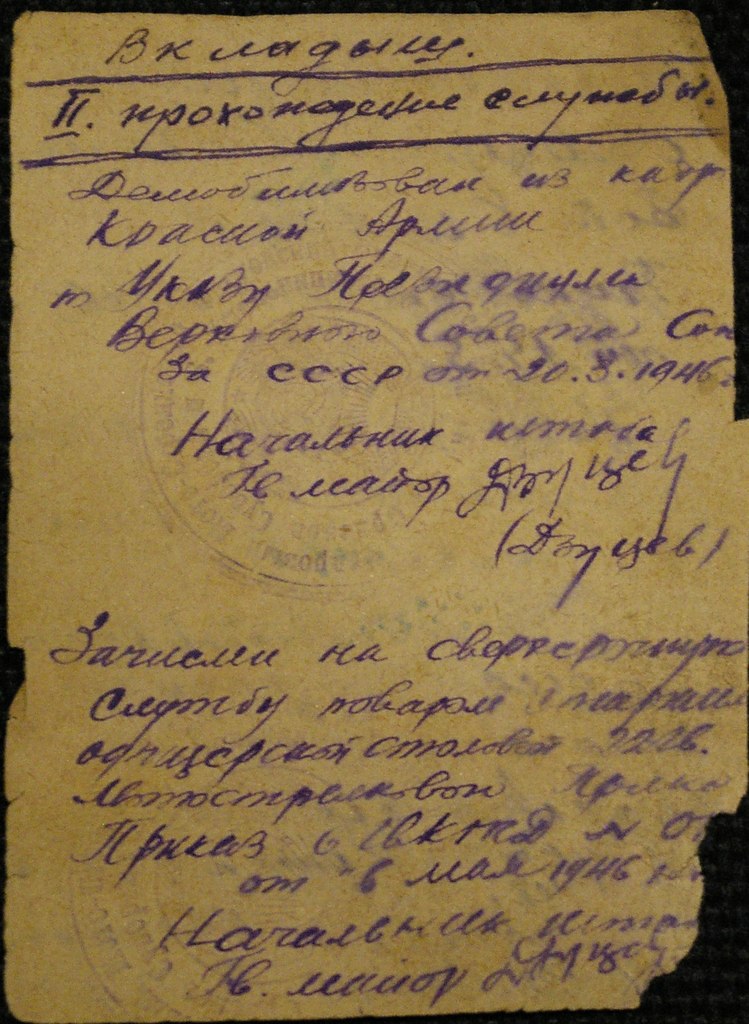 Вкладыш.
II. прохождение службы.
Демобилизован из
Красной Армии
Указу Президиума
Верховного Совета Сою
за СССР от 20.3.1946
Начальник штаба
Гв майор Дзуцев
(Дзуцев)
Зачислен на сверхсрочную
службу поваром
офицерской столовой 22 Гв.
Полка
Приказ 6 гв КМД № 0
от 8 мая 1946
Начальник шта
Гв. майор Дзуцев